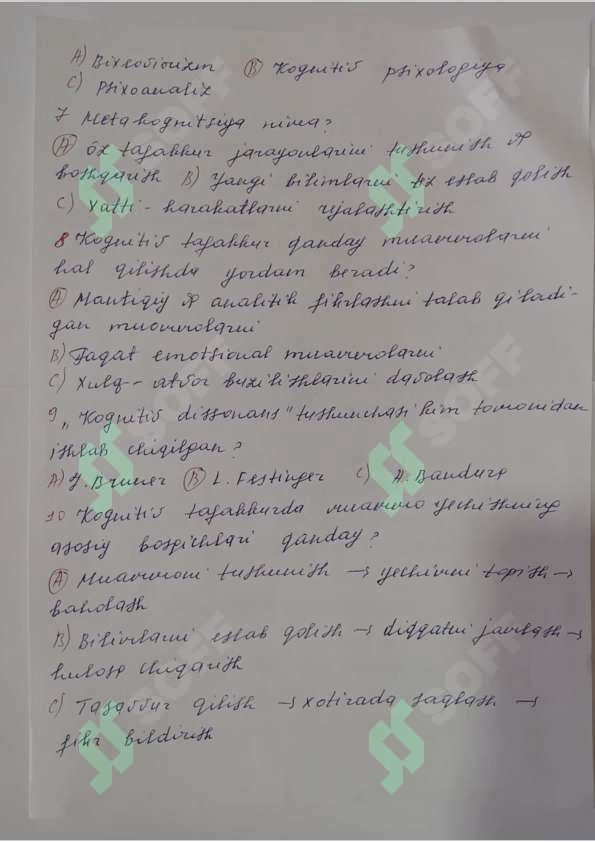 A) Bixeviorizm B) Kognitiv psixologiya
C) Psixoanaliz
7 Metakognitsiya nima?
A) Oz tafakkur jarayonlarini tushunish &
boshqarish B) Yangi bilimlarni tez eslab qolish
C) Xatti-harakatlarni rejalashtirish
8 Kognitiv tafakkur qanday muammolarni
hal qilishda yordam beradi?
A) Mantiqiy & analitik fikrlashni talab qiladi-
gan muammolarni
B) Faqat emotsional muammolarni
C) Xulq-atvor buzilishlarini davolash
9 „Kognitiv dissonans" tushunchasi kim tomonidan
ishlab chiqilgan?
A) J. Bruner B) L. Festinger C) A. Bandura
10 Kognitiv tafakkurda muammo yechishning
asosiy bosqichlari qanday?
A) Muammoni tushunish → yechimni topish →
baholash
B) Bilimlarni eslab qolish → diqqatni jamlash →
hulosa chiqarish
C) Tasavvur qilish → xotirada saqlash →
fikr bildirish
SOFF
SOFF
SOFF
SOFF
SOFF
SOFF